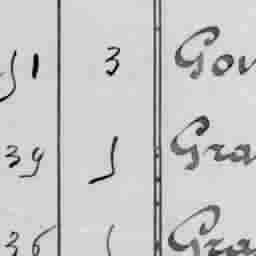 1 3 Gov
39 1 Gra
36 1 Gra